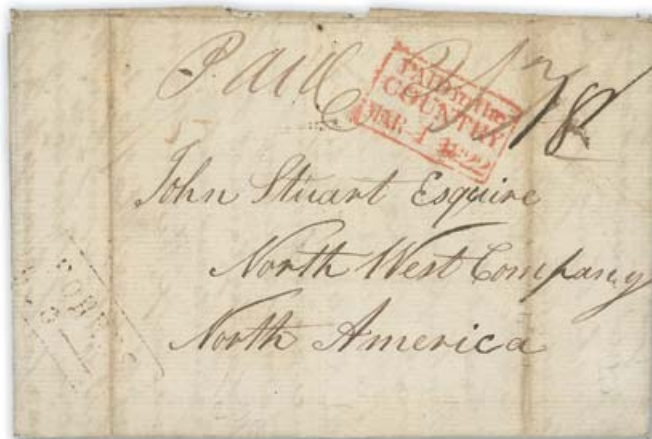 Paid
PAID in the
COUNTRY
MAR 1 1822
John Stuart Esquire
North West Company
North America
FORRES